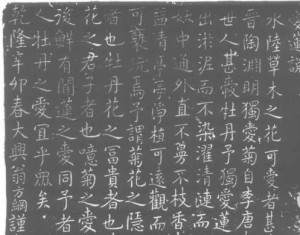 愛蓮說
水陸草木之花可愛者甚
晉陶淵明獨愛菊自李唐
世人甚愛牡丹予獨愛蓮
出淤泥而不染濯清漣而
妖中通外直不蔓不枝香
益清亭亭淨植可遠觀而
可褻玩焉予謂菊花之隱
者也牡丹花之富貴者也
花之君子者也噫菊之愛
後鮮有聞蓮之愛同予者
人牡丹之愛宜乎衆矣
乾隆辛卯春大興翁方綱謹